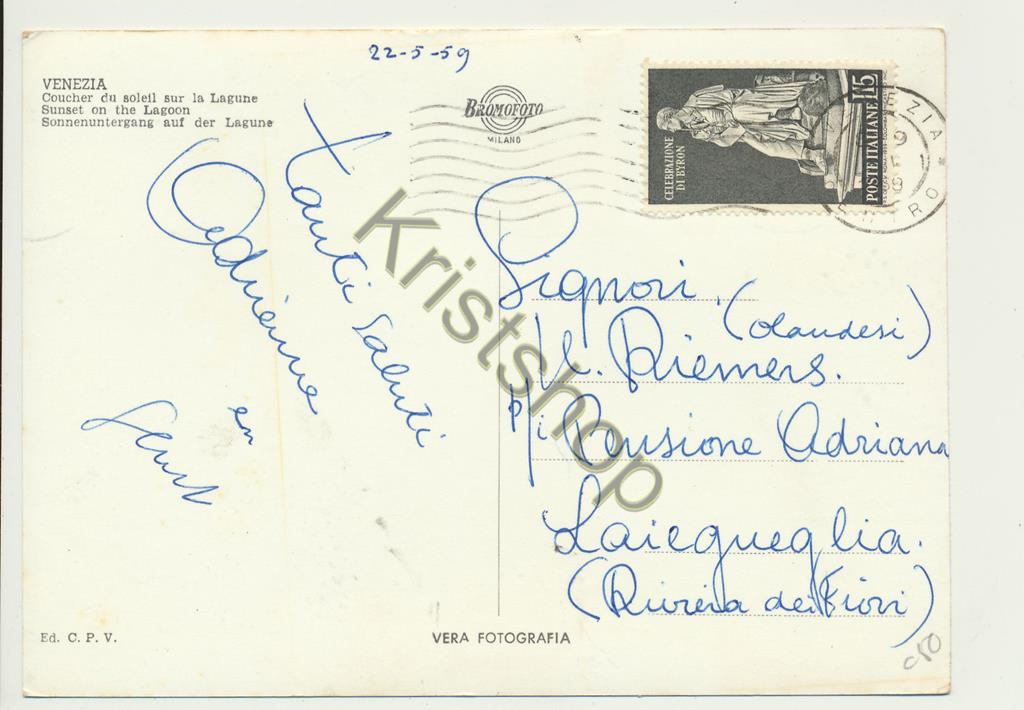 22-5-59
VENEZIA
Coucher du soleil sur la Lagune
Sunset on the Lagoon
Sonnenuntergang auf der Lagune
BROMOFOTO
MILANO
CELEBRAZIONE
DI BYRON
POSTE ITALIANE L.15
Tanti Saluti
Adrienne
en
Signori.
(Olandesi)
Riemers.
p/i Pensione Adriana
Laiegueglia.
(Riviera dei Fiori)
Ed. C. P. V.
VERA FOTOGRAFIA
c50
Kristshop